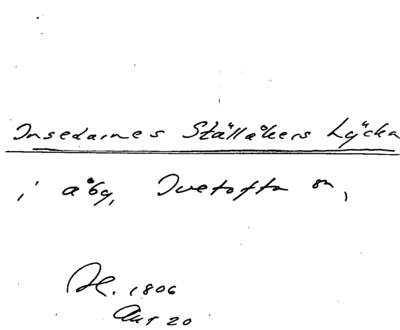 Insedarnes Ställåkers Lycka
i åby, Ivetofta sn,
H. 1806
Akt 20